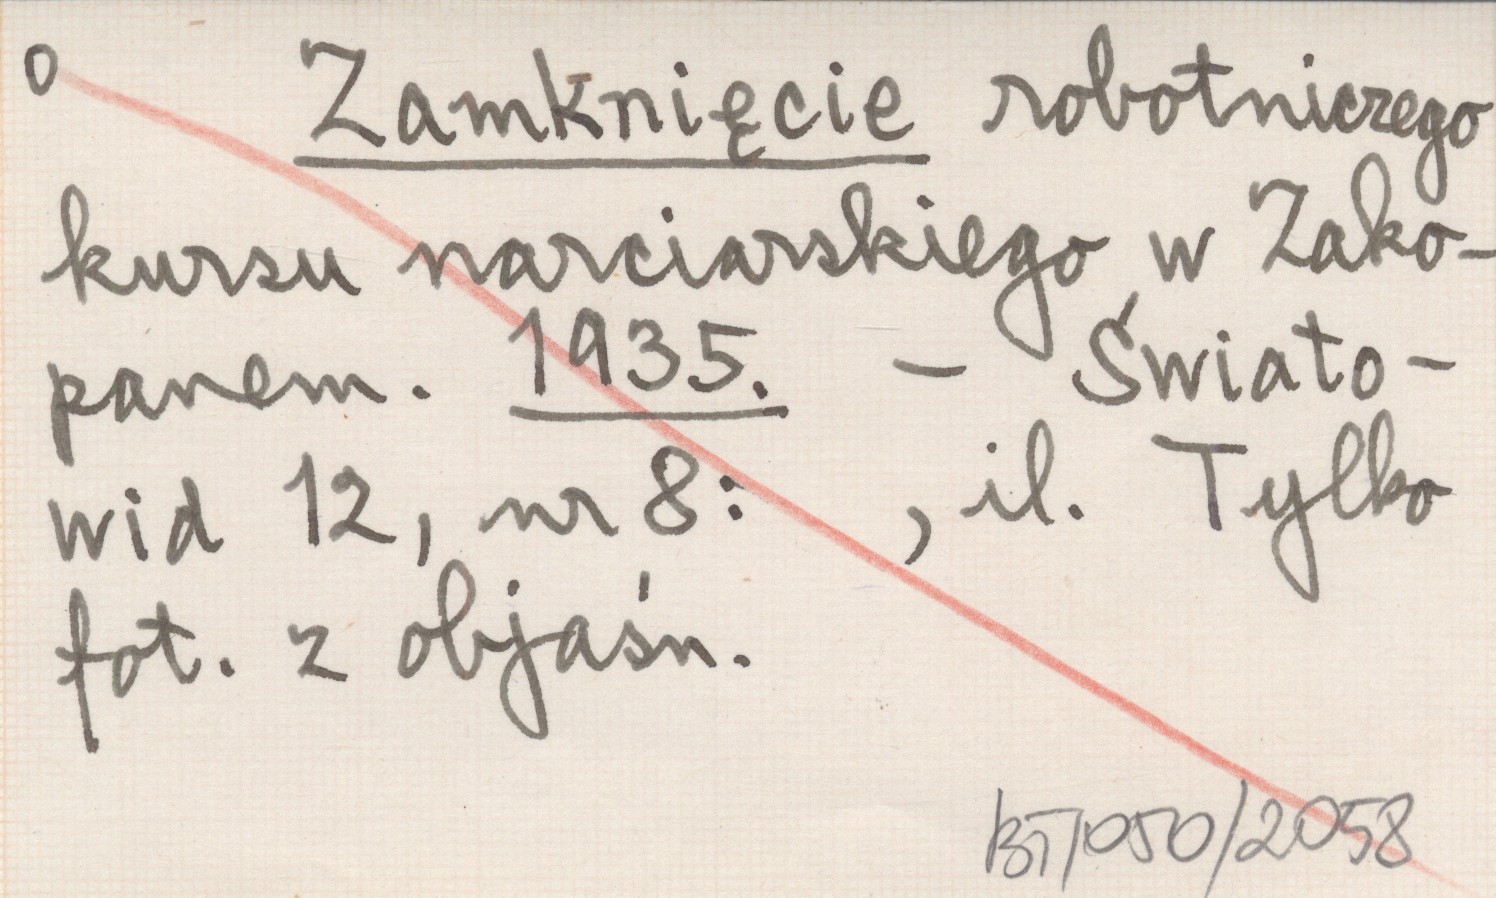 o Zamknięcie robotniczego
kursu narciarskiego w Zako-
panem. 1935. – Świato-
wid 12, nr 8: , il. Tylko
fot. z objaśn.
BT/050/2058